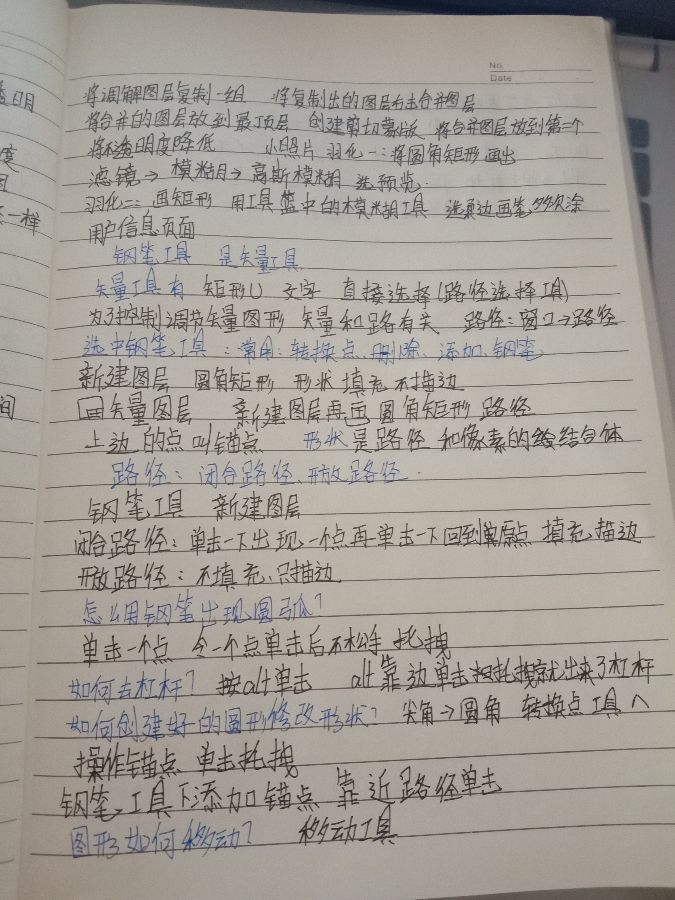 透明
度
一样
间
No.
Date
将调解图层复制一组 将复制出的图层右击合并图层
将合并的图层放到最顶层 创建剪切蒙版 将合并图层放到第二个
将不透明度降低 小照片 羽化一:将圆角矩形画出
滤镜→模糊→高斯模糊 选预览
羽化二:画矩形 用工具篮中的模糊工具 选柔边画笔,多次涂
用户信息页面
钢笔工具 是矢量工具
矢量工具有 矩形U 文字 直接选择(路径选择工具)
为了控制调节矢量图形 矢量和路有关 路径:窗口→路径
选中钢笔工具:常用:转换点、删除、添加、钢笔
新建图层 圆角矩形 形状 填充 不描边
画矢量图层 新建图层再画 圆角矩形 路径
上边的点叫锚点 形状是路径和像素的结合体
路径:闭合路径、开放路径.
钢笔工具 新建图层
闭合路径:单击一下出现一个点再单击一下回到原点 填充、描边
开放路径:不填充、只描边
怎么用钢笔出现圆弧?
单击一个点 令一个点单击后不松手 托拽
如何去杠杆? 按alt单击 alt靠边单击托拽就出来了杠杆
如何创建好的圆形修改形状? 尖角→圆角 转换点工具へ
操作锚点 单击托拽
钢笔工具下添加锚点 靠近路径单击
图形如何移动? 移动工具